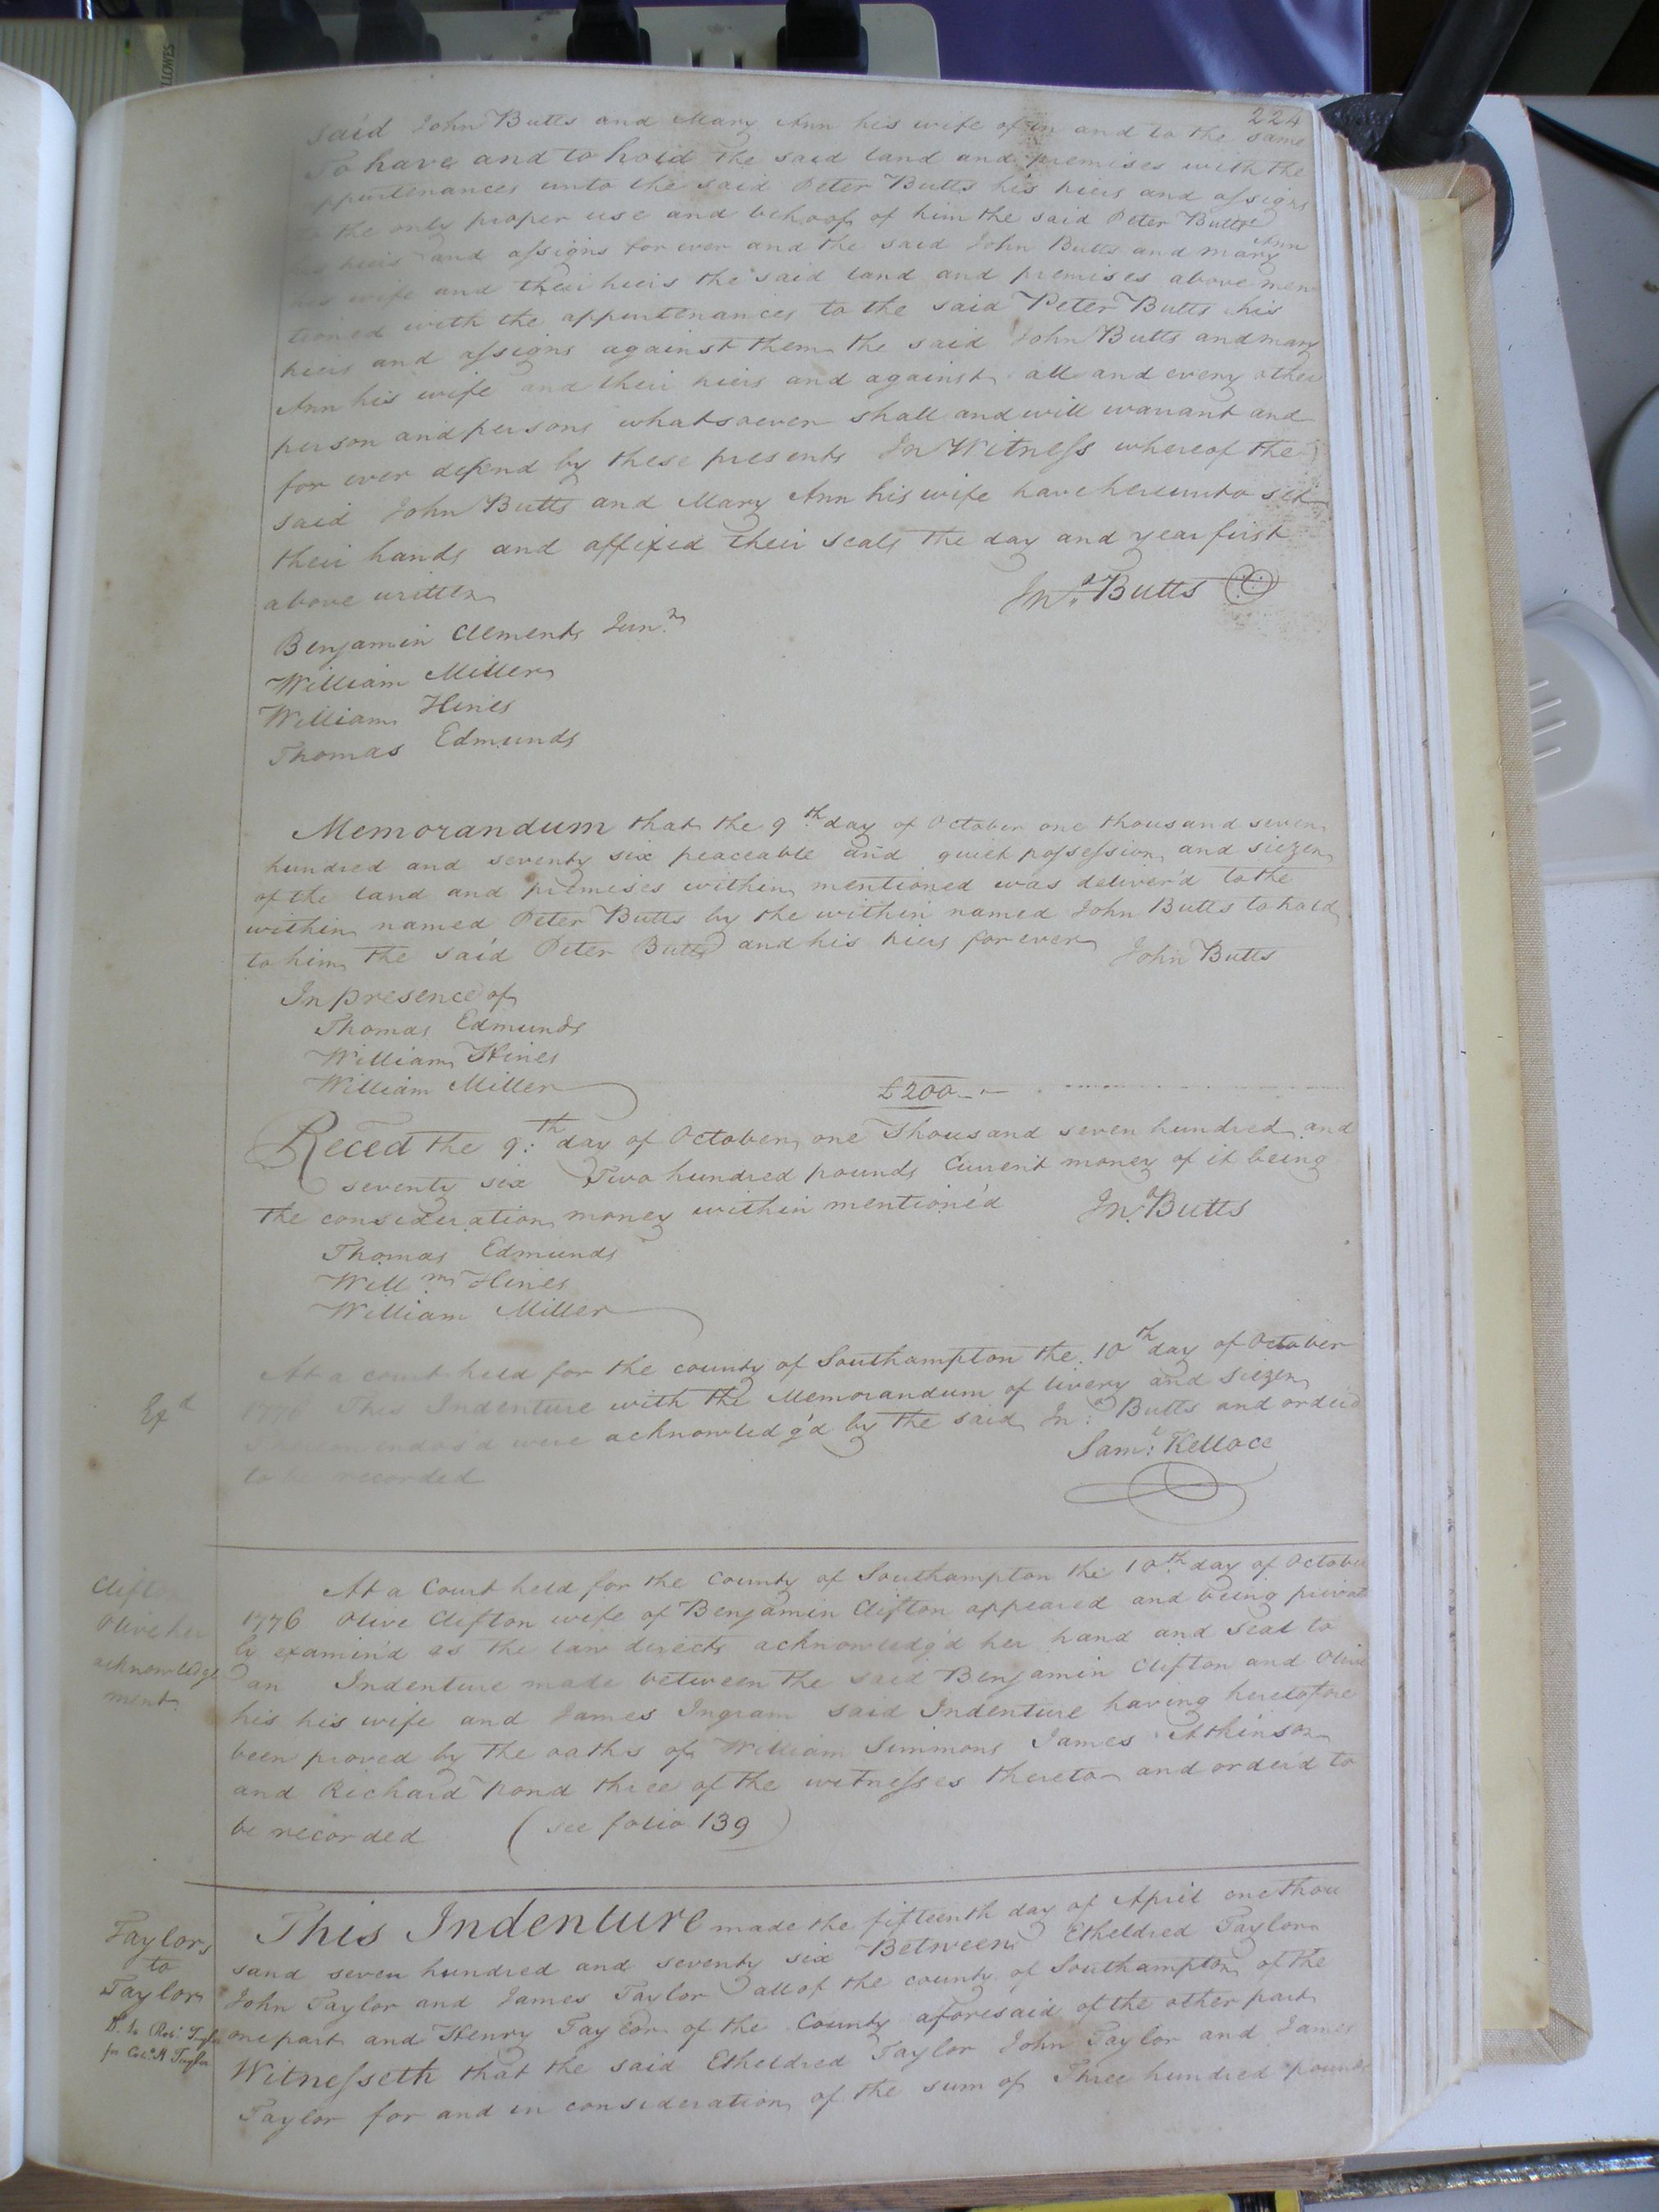 224
said John Butts and Mary Ann his wife of in and to the same
To have and to hold the said land and premises with the
ppurtenances unto the said Peter Butts his heirs and assigns
the only proper use and behoof of him the said Peter Butts
heirs and assigns for ever and the said John Butts and Mary Ann
his wife and their heirs the said land and premises above men
tioned with the appurtenances to the said Peter Butts his
heirs and assigns against them the said John Butts and Mary
Ann his wife and their heirs and against all and every other
person and persons whatsoever shall and will warrant and
for ever defend by these presents In Witness whereof the
said John Butts and Mary Ann his wife have hereunto set
their hands and affixed their seals the day and year first
above written
Jno. Butts
Benjamin Clements Junr.
William Miller
William Hines
Thomas Edmunds
Memorandum that the 9th day of October one thousand seven
hundred and seventy six peaceable and quiet possession and siezen
of the land and premises within mentioned was deliver'd to the
within named Peter Butts by the within named John Butts to hold
to him the said Peter Butts and his heirs for ever
John Butts
In presence of
Thomas Edmunds
William Hines
William Miller
£200
Reced the 9th day of October one Thousand seven hundred and
seventy six Two hundred pounds Current money of it being
the consideration money within mentione'd
Jno. Butts
Thomas Edmunds
Willm Hines
William Miller
At a court held for the county of Southampton the 10th day of October
1776 This Indenture with the Memorandum of livery and Siezen
endors'd were acknowledg'd by the said Jno. Butts and order'd
to be recorded
Saml. Kelloce
Exd
Clifton
Olive her
acknowledge
ment
At a Court held for the County of Southampton the 10th day of October
1776 Olive Clifton wife of Benjamin Clifton appeared and being privat
ly examin'd as the law directs acknowledg'd her hand and seal to
an Indenture made between the said Benjamin Clifton and Olive
his his wife and James Ingram said Indenture having heretofore
been proved by the oaths of William Simmons James Atkinson
and Richard Pond three of the witnesses thereto and order'd to
be recorded (see folio 139)
Taylors
to
Taylor
This Indenture made the fifteenth day of April one thou
sand seven hundred and seventy six Between Etheldred Taylor
John Taylor and James Taylor all of the county of Southampton of the
one part and Henry Taylor of the County aforesaid of the other part
Witnesseth that the said Etheldred Taylor John Taylor and James
Taylor for and in consideration of the sum of Three hundred pounds